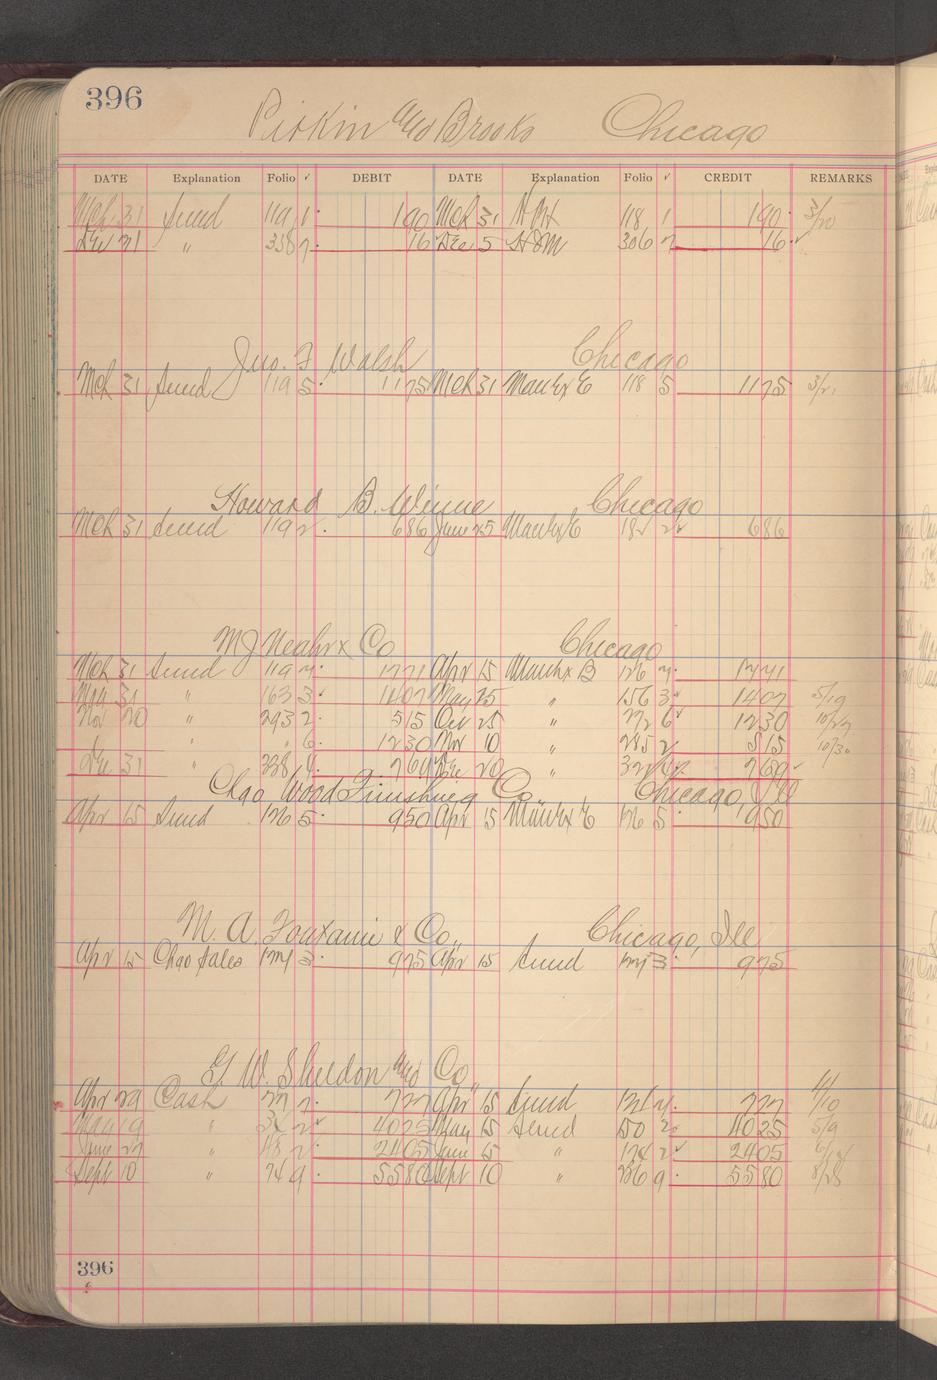 396
Pitkin and Brooks Chicago
DATE Explanation Folio ✓ DEBIT DATE Explanation Folio ✓ CREDIT REMARKS
Mch 31 Sund 119 1 190 Mch 31 118 1 190 3/20
Dec 31 " 338 7 16 Dec 5 306 7 16 ✓
Jno. F Walsh Chicago
Mch 31 Sund 119 5 1175 Mch 31 Man Ex E 118 5 1175
Howard B. Winne Chicago
Mch 31 Sund 119 2 686 June 25 Man Ex E 2 686
M J Neahr & Co Chicago
Mch 31 Sund 119 Apr 15 126
May 31 " 163 3 1407 May 25 " 156 3 1407 5/19
Nov 20 " 293 2 515 Oct 25 " 272 6 1230 10/27
" " 6 1230 Nov 10 " 285 2 515 10/30
Dec 31 " 338 4 760 Dec 20 " 760
Chgo Wood Finishing Co. Chicago, Ill
Apr 15 Sund 126 5 950 Apr 15 Man Ex E 126 5 950
M. A. & Co., Chicago, Ill
Apr 15 Chgo Sales 127 3 975 Apr 15 Sund 127 3 975
G. W. Sheldon and Co,
Apr 29 Cash 27 7 727 Apr 15 Sund 131 727 4/10
May 19 " 34 2 4025 May 15 Sund 150 2 4025 5/9
June 27 " 48 2 2405 June 15 " 174 2 2405
Sept 10 " 74 9 5580 Sept 10 " 236 9 5580 8/28
396